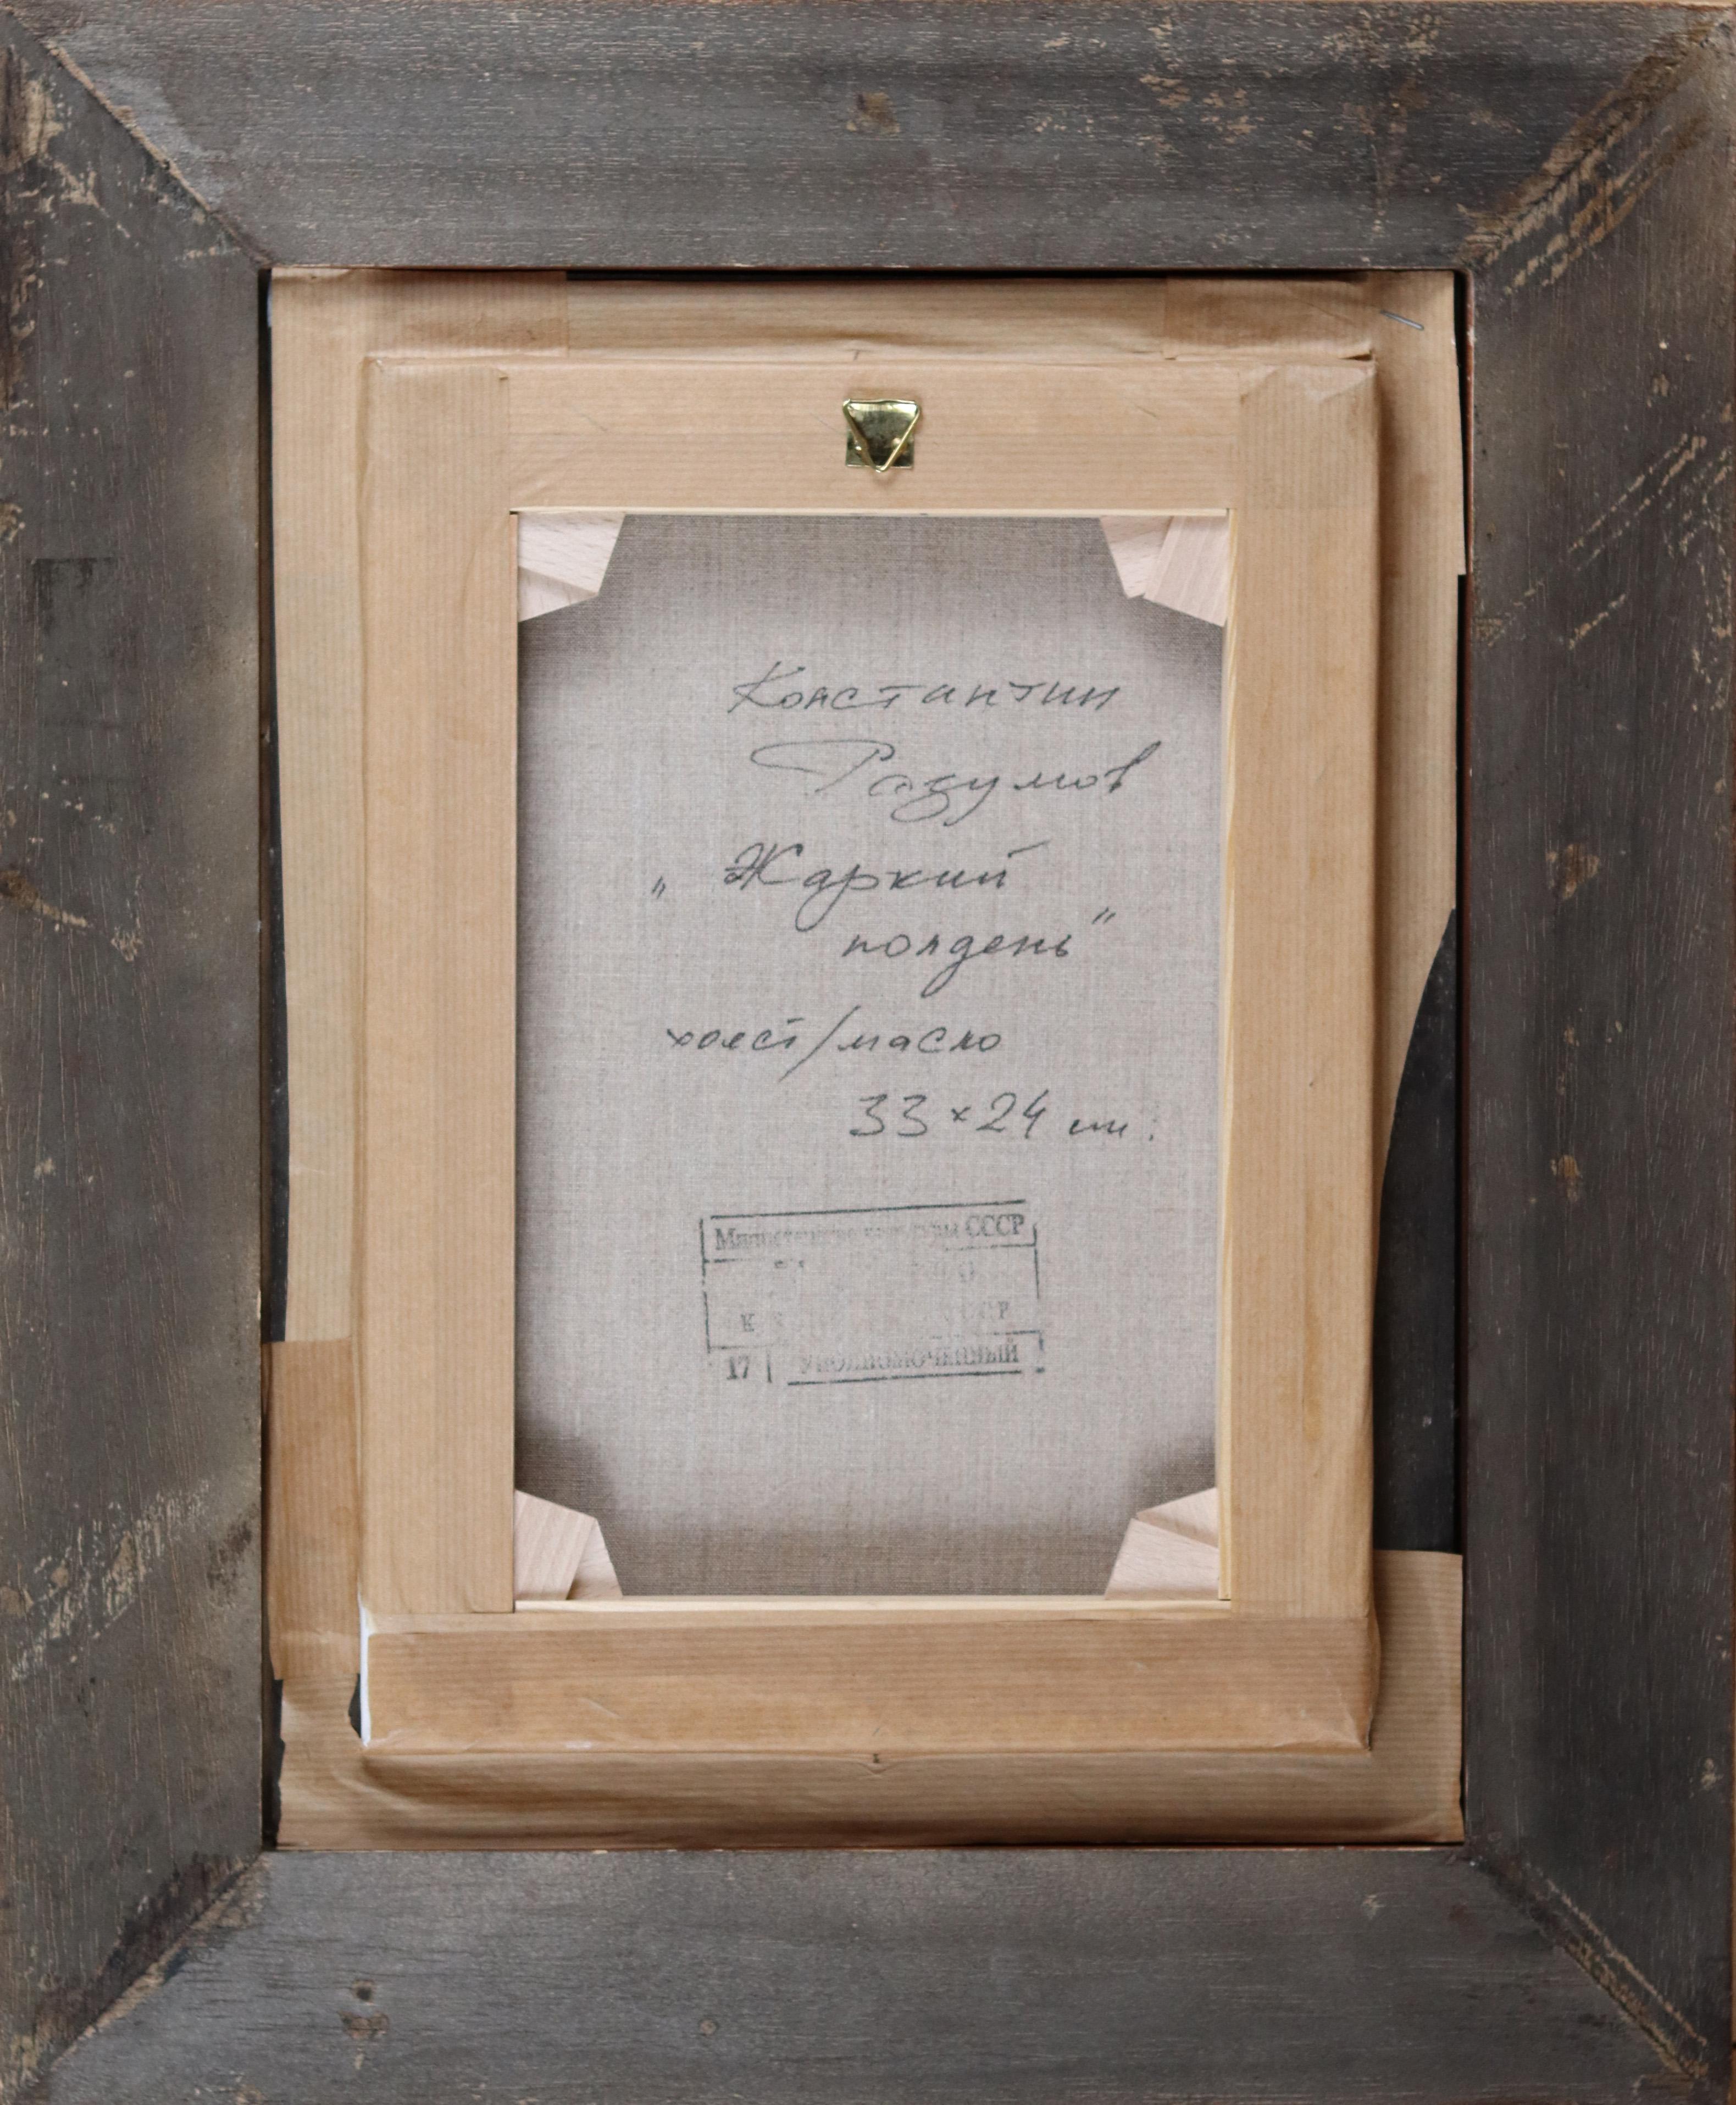 Константин
Разумов
„ Жаркий
полдень"
холст/масло
33 × 24 см.
Министерство культуры СССР
К
17 Уполномоченный